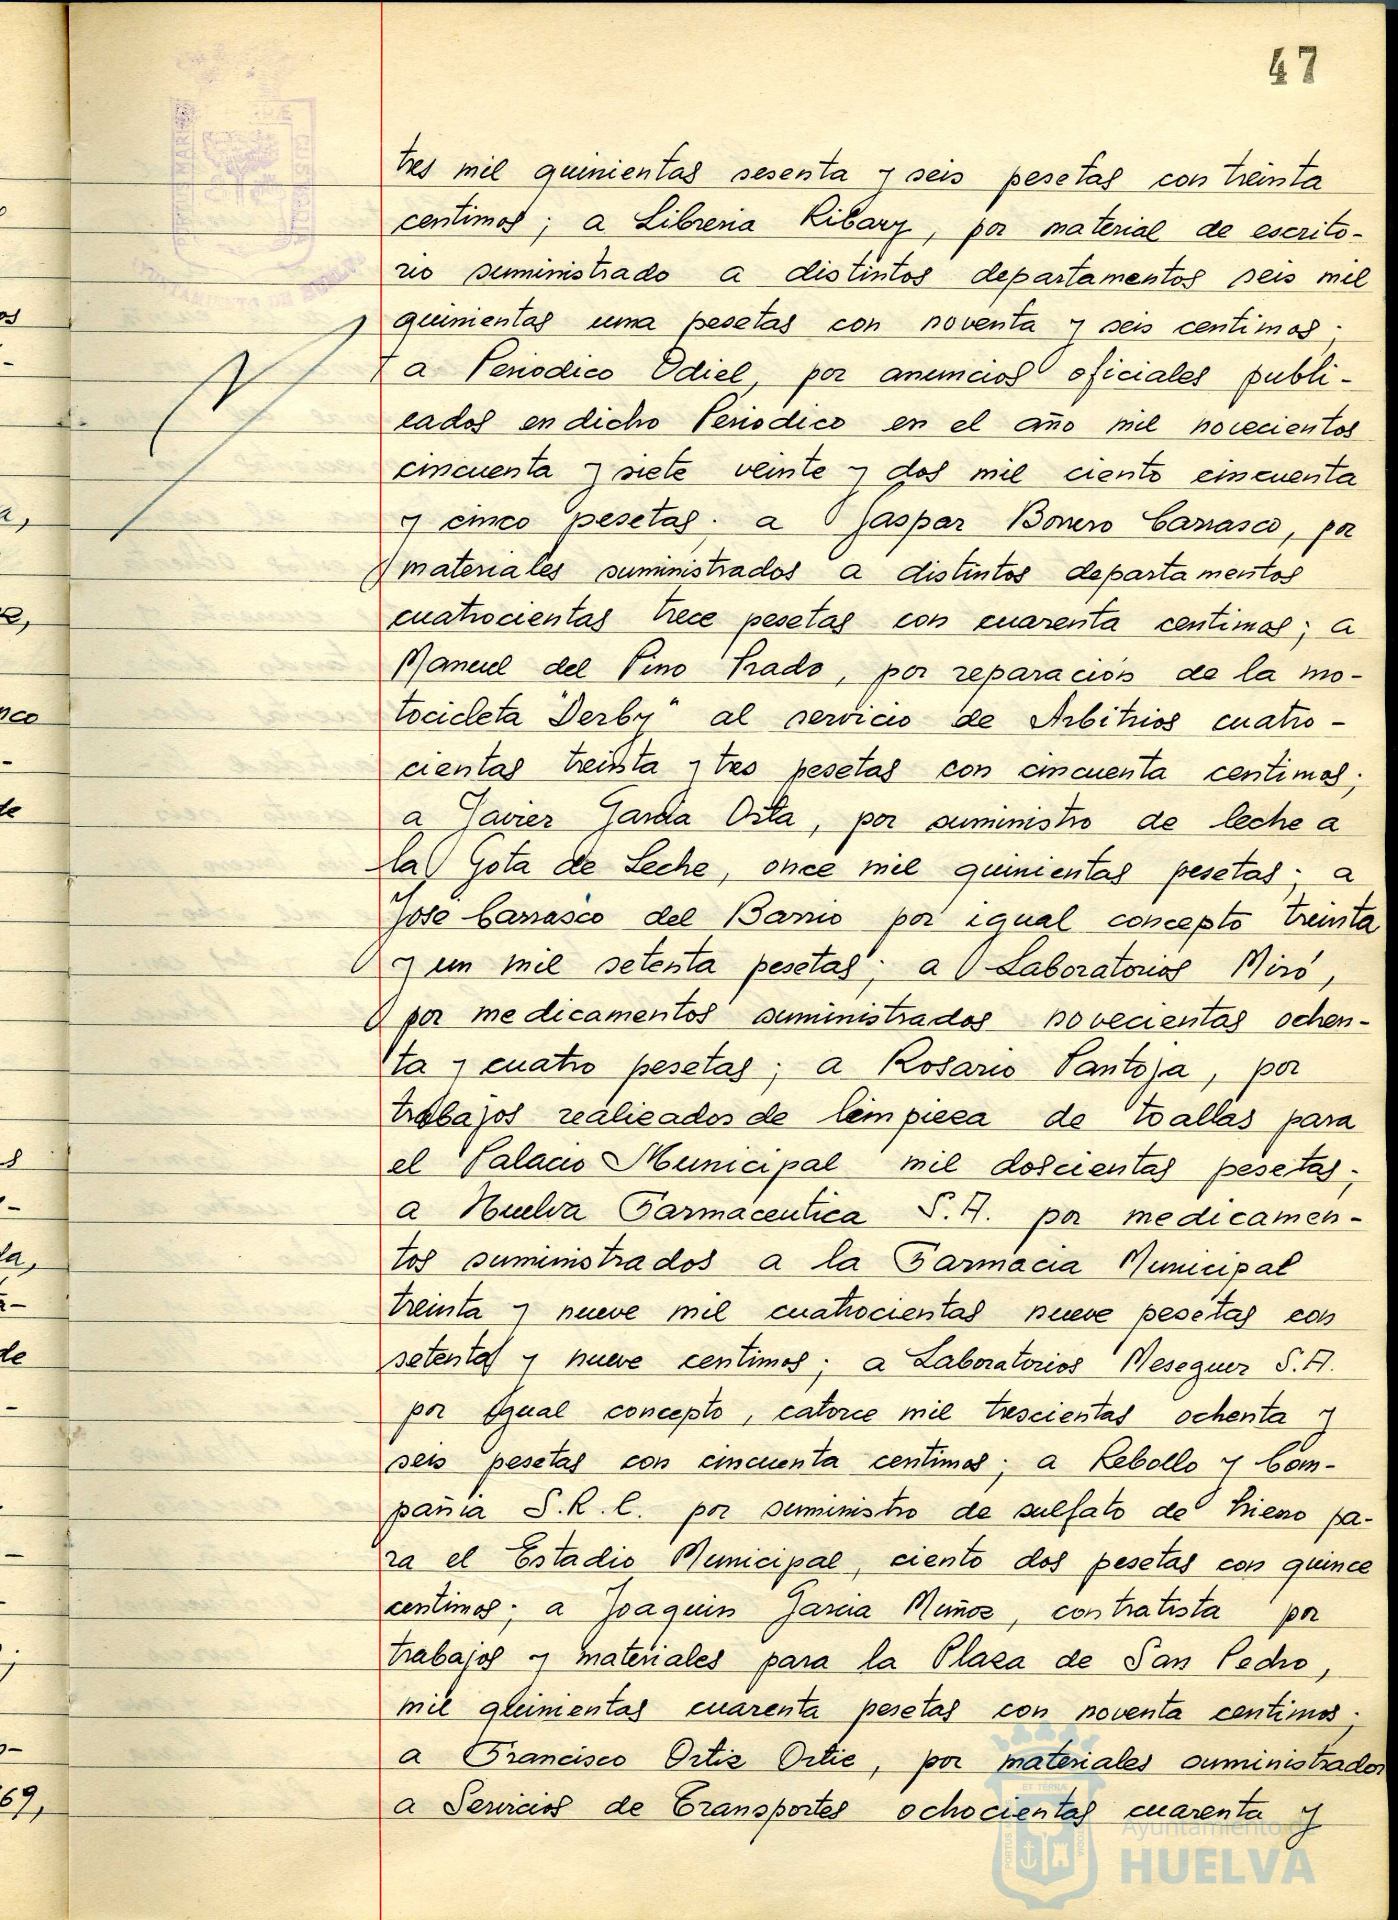 47
tres mil quinientas sesenta y seis pesetas con treinta
centimos; a Libreria Ribary, por material de escrito-
rio suministrado a distintos departamentos seis mil
quinientas una pesetas con noventa y seis centimos;
a Periodico Odiel, por anuncios oficiales publi-
cados en dicho Periodico en el año mil novecientos
cincuenta y siete veinte y dos mil ciento cincuenta
y cinco pesetas; a Gaspar Borrero Carrasco, por
materiales suministrados a distintos departamentos
cuatrocientas trece pesetas con cuarenta centimos; a
Manuel del Pino Prado, por reparación de la mo-
tocicleta "Derby" al servicio de Arbitrios cuatro-
cientas treinta y tres pesetas con cincuenta centimos;
a Javier Garcia Orta, por suministro de leche a
la Gota de Leche, once mil quinientas pesetas; a
José Carrasco del Barrio por igual concepto treinta
y un mil setenta pesetas; a Laboratorios Miró,
por medicamentos suministrados novecientas ochen-
ta y cuatro pesetas; a Rosario Pantoja, por
trabajos realizados de limpieza de toallas para
el Palacio Municipal mil doscientas pesetas;
a Huelva Farmaceutica S.A. por medicamen-
tos suministrados a la Farmacia Municipal
treinta y nueve mil cuatrocientas nueve pesetas con
setenta y nueve centimos; a Laboratorios Meseguer S.A.
por igual concepto, catorce mil trescientas ochenta y
seis pesetas con cincuenta centimos; a Rebollo y Com-
pañia S.R.C. por suministro de sulfato de hierro pa-
ra el Estadio Municipal, ciento dos pesetas con quince
centimos; a Joaquin Garcia Muñoz, contratista por
trabajos y materiales para la Plaza de San Pedro,
mil quinientas cuarenta pesetas con noventa centimos;
a Francisco Ortiz Ortiz, por materiales suministrados
a Servicios de Transportes ochocientas cuarenta y
PORTUS MARIS ET TERRAE CUSTODIA
AYUNTAMIENTO DE HUELVA
Ayuntamiento de
HUELVA